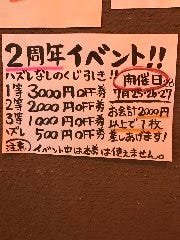 2周年イベント!!
ハズレなしのくじ引き!!
1等 3000円OFF券
2等 2000円OFF券
3等 1000円OFF券
ハズレ 500円OFF券
開催日
9月25・26・27
お会計2000円
以上で1枚
差しあげます!
注意) イベント中は本券は使えません。